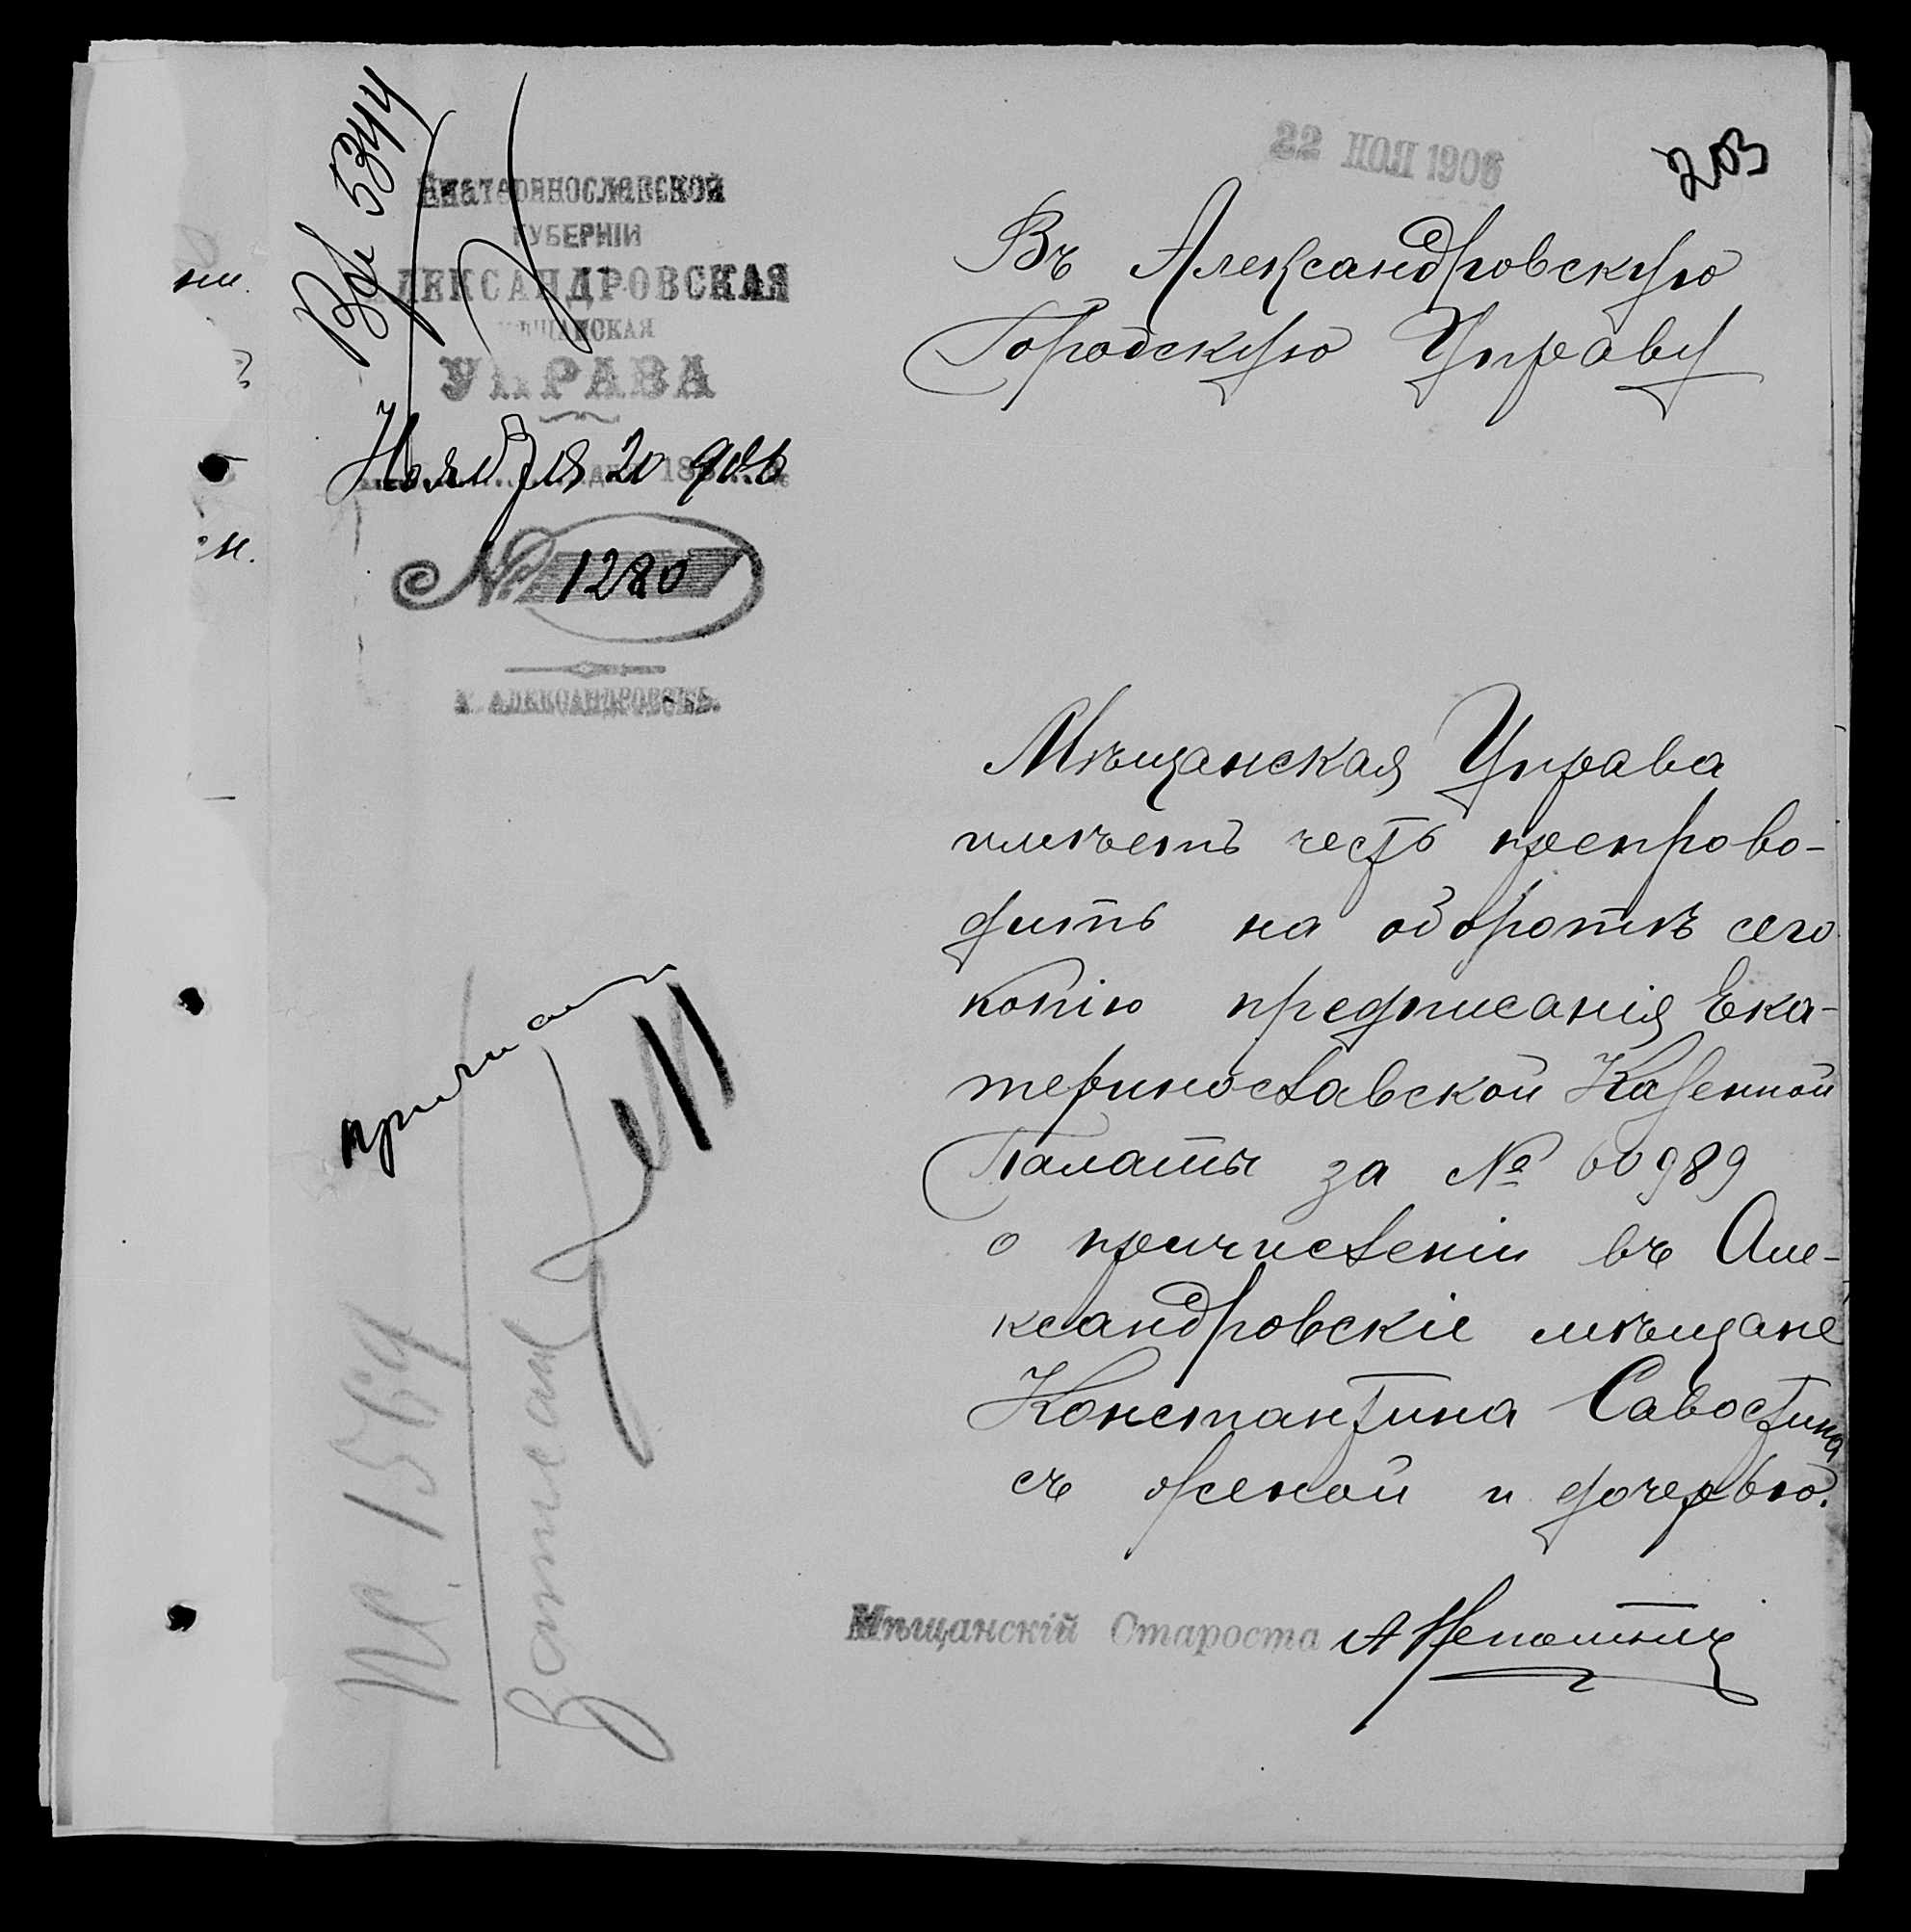 22 НОЯ 1906
203
Вх 5344
Екатеринославской
ГУБЕРНІИ
АЛЕКСАНДРОВСКАЯ
МѢЩАНСКАЯ
УПРАВА
Ноября 20 906
№ 1280
Г. АЛЕКСАНДРОВСКЪ.
Въ Александровскую
Городскую Управу
Мѣщанская Управа
имѣетъ честь препрово-
дить на оборотѣ сего
копію предписанія Ека-
теринославской Казенной
Палаты за № 60989
о причисленіи въ Але-
ксандровскіе мѣщане
Константина Савостина
съ женой и дочерью.
Мѣщанскій Староста